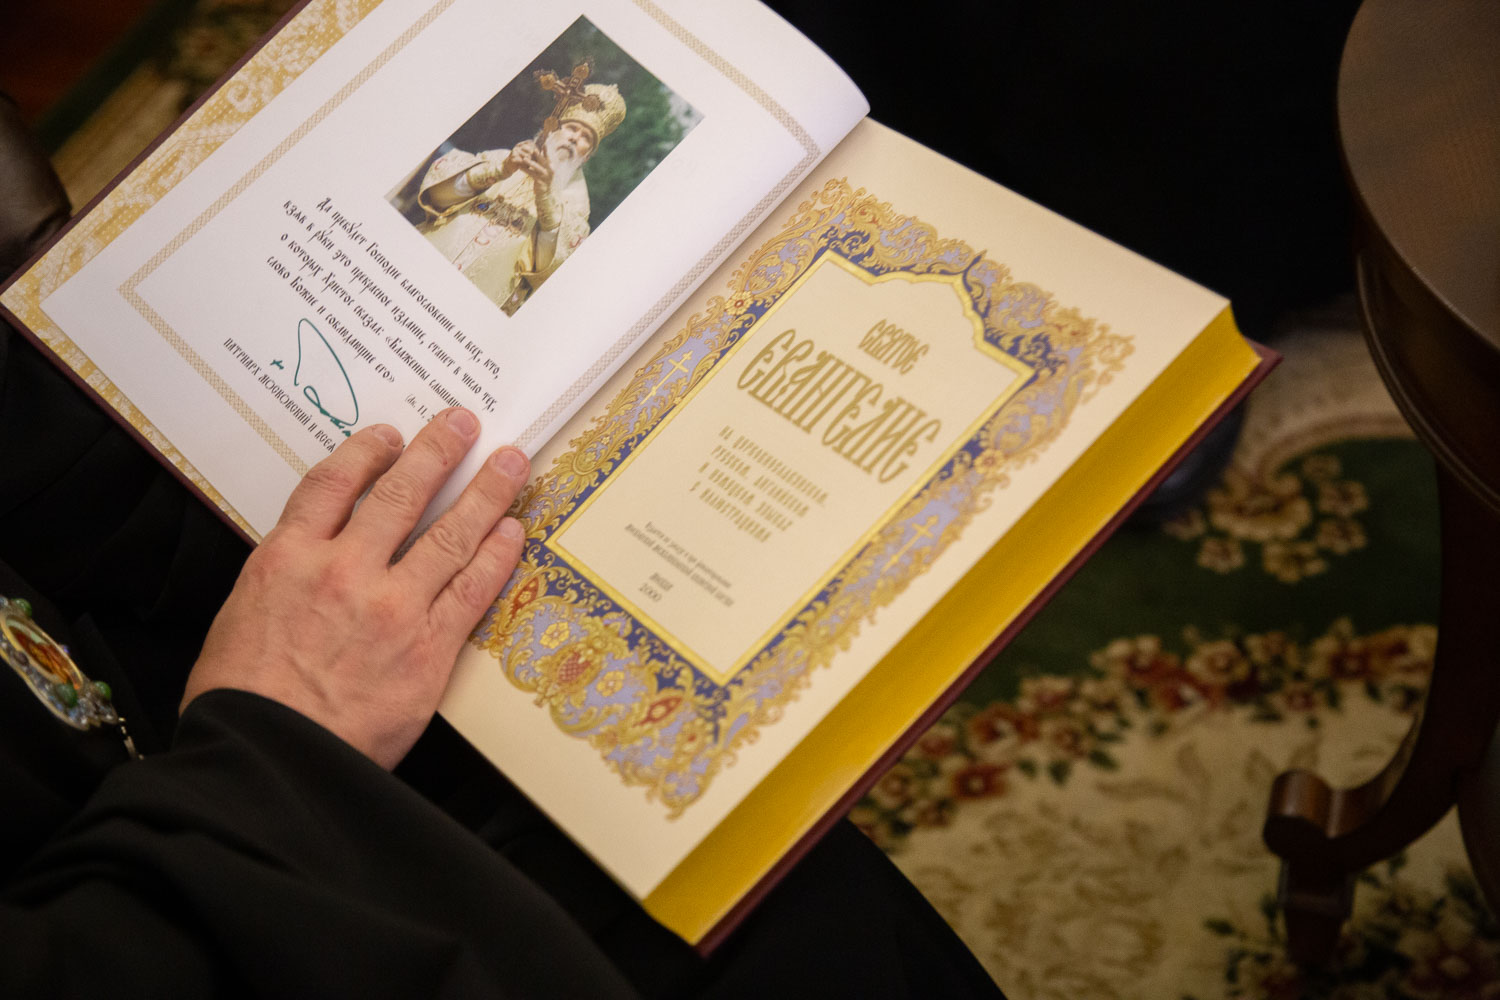 Да пребудет Господне благословение на всех, кто,
взяв в руки это прекрасное издание, станет в число тех,
о которых Христос сказал: «Блаженны слышащие
слово Божие и соблюдающие его»
(Лк. 11,
ПАТРИАРХ МОСКОВСКИЙ И ВСЕЯ
СВЯТОЕ
ЕВАНГЕЛИЕ
НА ЦЕРКОВНОСЛАВЯНСКОМ,
РУССКОМ, АНГЛИЙСКОМ
И НЕМЕЦКОМ ЯЗЫКАХ
С ИЛЛЮСТРАЦИЯМИ
2000